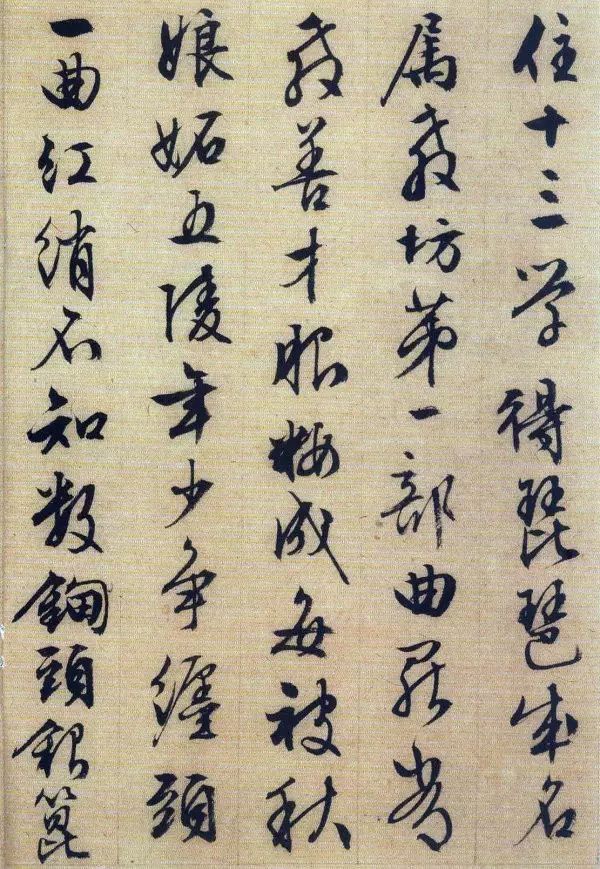 住十三学得琵琶成名
属教坊第一部曲罷常
教善才服粧成每被秋
娘妬五陵年少争纏頭
一曲紅綃不知数鈿頭銀篦